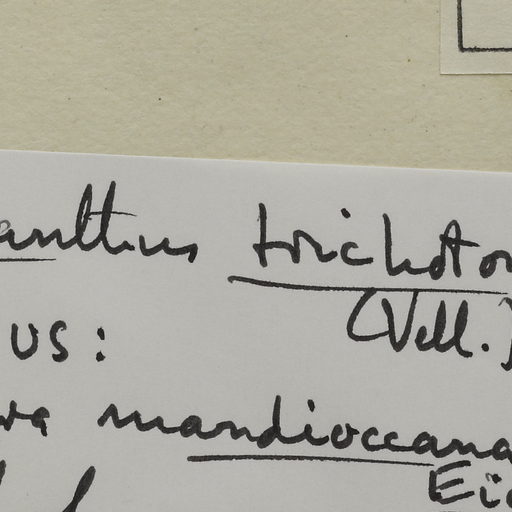 anthus trichoto
(Vell.)
us:
va mandioccana
Eic